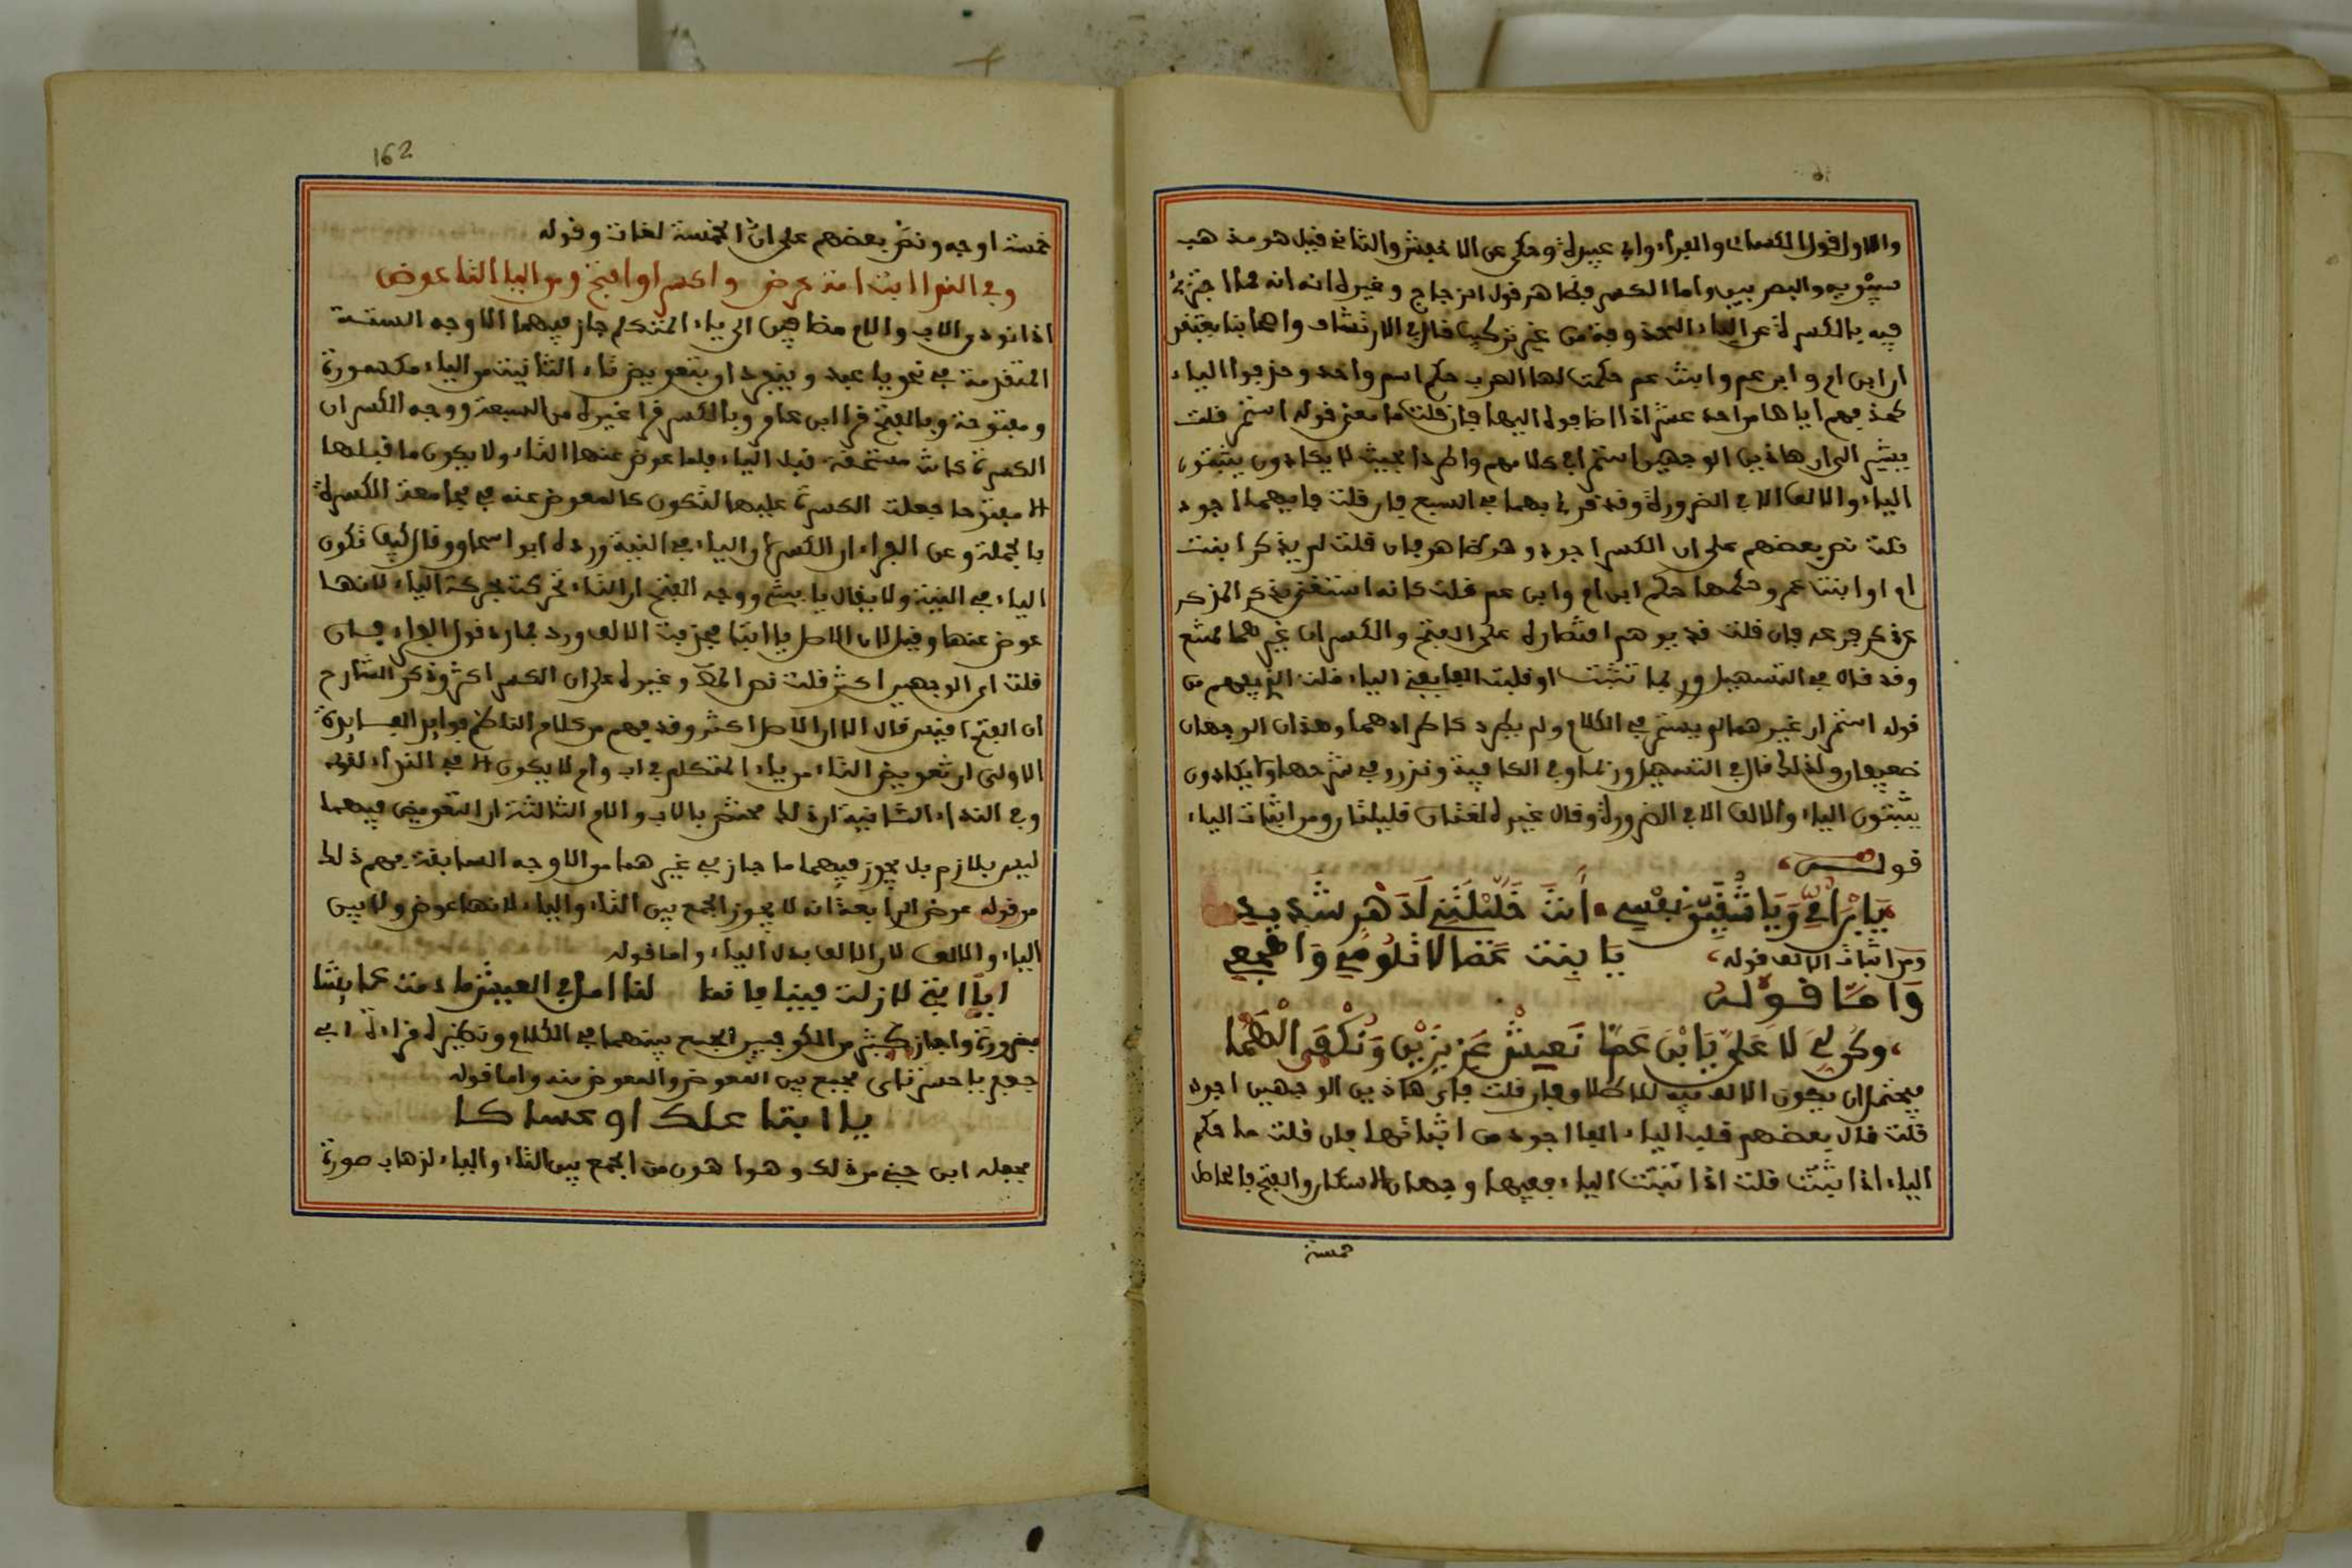 والاول قول الكسائي والفراء وابي عبيدة وحكي عن الاخفش والثاني قيل هو مذهب
سيبويه والبصريين واما الكسر فظاهر قول الزجاج وغيره انه انه مما اجتزئ
فيه بالكسرة عن الياء المحذوفة من غير تركيب قال في الارتشاف واصحابنا يعتقدون
ان ابن ام وابن عم وابنت عم حكمت لها العرب حكم اسم واحد وحذفوا الياء
كحذفهم اياها من احد عشر اذا اضافوه اليها فان قلت ما معنى قوله استمر قلت
يشير الى ان هاذين الوجهين استمر في كلامهم واطردا بحيث لا يكادون يثبتون
الياء والالف الا في الضرورة وقد قرئ بهما في السبع فان قلت فايهما اجود
قلت نص بعضهم على ان الكسر اجود وهو ظاهر فان قلت لم يذكر ابنت
ام او ابنت عم وحكمها حكم ابن ام وابن عم قلت كانه استغنى بذكر المذكر
عن ذكر فرعه فان قلت قد يوهم اقتصاره على الفتح والكسر ان غيرهما ممتنع
وقد قال في التسهيل وربما تثبت او قلبت الفا يعني الياء قلت الذي يفهم من
قوله استمر ان غيرهما لم يستمر في الكلام ولم يطرد كاطرادهما وهذان الوجهان
ضعيفان ولذلك قال في التسهيل وربما وفي الكافية ونزر وفي شرحها ولا يكادون
يثبتون الياء والالف الا في الضرورة وقال غيره لغتان قليلتان ومن اثبات الياء
قولـــه
يَا ابْنَ أُمِّي وَيَا شُقَيِّقَ نَفْسِي أَنْتَ خَلَّيْتَنِي لِدَهْرٍ شَدِيدِ
ومن اثبات الالف قوله يَا بنت عَمَّا لا تَلُومِي وَاهْجَعِي
وَامَّا قوله
وكُن لِي لَا عَلَيَّ يَا ابْنَ عَمَّا نَعِيشُ عَزِيزَيْنِ وَنُكْفَى الْهَمَّا
فيحتمل ان يكون الالف فيه للاطلاق فان قلت فاي هاذين الوجهين اجود
قلت قال بعضهم قلب الياء الفا اجود من اثباتها فان قلت ما حكم
الياء اذا اثبتت قلت اذا اثبتت الياء ففيها وجهان الاسكان والفتح فالحاصل
خمسة
162
خمسة اوجه ونص بعضهم على ان الخمسة لغات وقوله
وفي الندا ابت امت عرض واكسر او افتح ومن اليا التا عوض
اذا نودي الاب والام مضافين الى ياء المتكلم جاز فيهما الاوجه الستة
المتقدمة في نحو يا عبد وينجد او بتعويض تاء التانيث من الياء مكسورة
ومفتوحة وبالفتح قرا ابن عامر وبالكسر قرا غيره من السبعة ووجه الكسر ان
الكسرة كانت مستحقة قبل الياء فلما عوض عنها التاء ولا يكون ما قبلها
الا مفتوحا جعلت الكسرة عليها لتكون كالمعوض عنه في مجامعة الكسرة
بالجملة وعن الفراء ان الكسر والياء في النية ورده ابو اسحاق وقال كيف تكون
الياء في النية ولا يقال يا ابتي ووجه الفتح ان التاء تحركت بحركة الياء لانها
عوض عنها وقيل لان الاصل يا ابتا فحذفت الالف ورد بما رد قول الفراء فان
قلت اي الوجهين اكثر قلت نص المص وغيره على ان الكسر اكثر وذكر الشارح
ان الفتح اقيس قال الا ان الاصل اكثر وقد يفهم من كلام الناظم فوايد الفايدة
الاولى ان تعويض التاء من ياء المتكلم في اب وام لا يكون الا في النداء لقوله
وفي النداء الثانية ان ذلك مختص بالاب والام الثالثة ان التعويض فيهما
ليس بلازم بل يجوز فيهما ما جاز في غيرهما من الاوجه السابقة يفهم ذلك
من قوله عرض الرابعة انه لا يجوز الجمع بين التاء والياء لانها عوض ولا بين
الياء والالف لان الالف بدل الياء واما قوله
ايا ابتي لا زلت فينا فانما لنا امل في العيش ما دمت عايشا
فضرورة واجاز كثير من الكوفيين الجمع بينهما في الكلام ونظيره قراءة ابي
جعفر يا حسرتاى فجمع بين المعوض والمعوض منه واما قوله
يا ابتا علك او عساكا
فجعله ابن جني من ذلك وهو اهون من الجمع بين التاء والياء لذهاب صورة